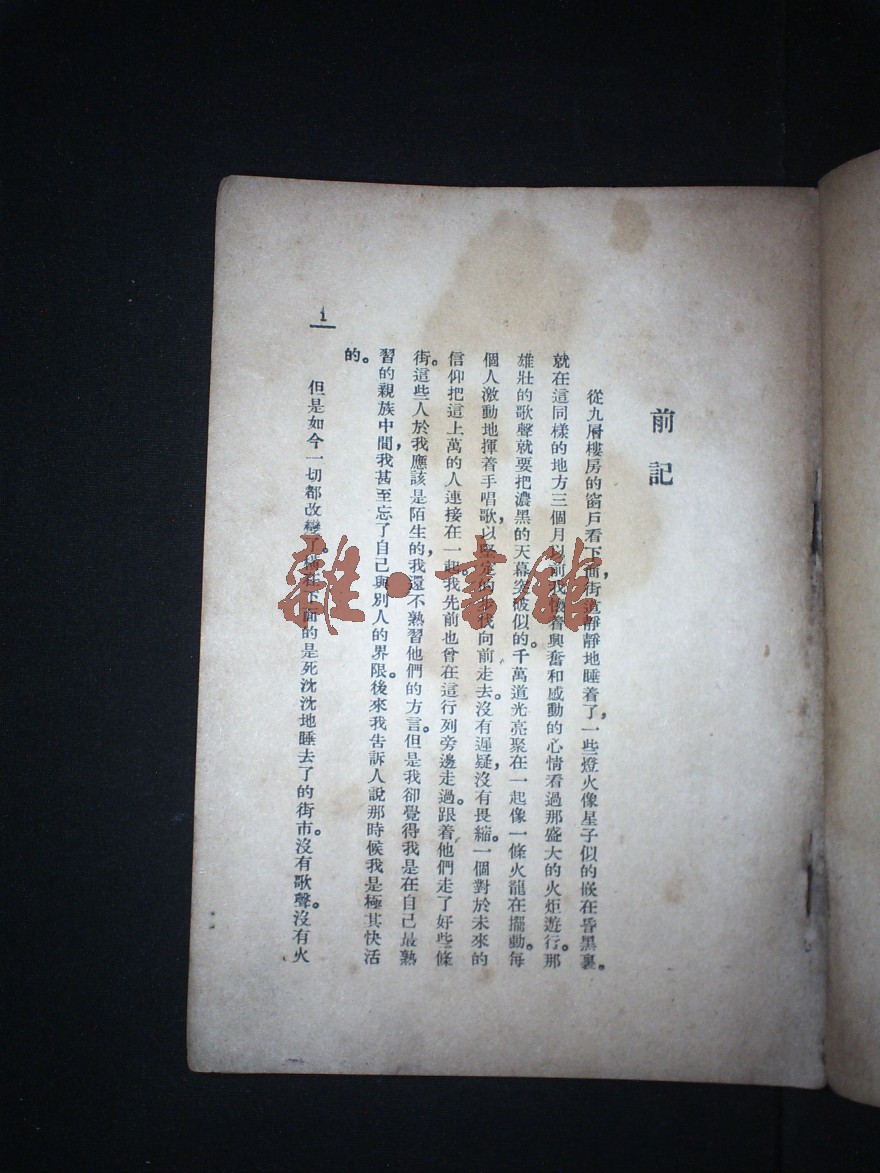 前記
從九層樓房的窗戶看下面,街道靜靜地睡着了,一些燈火像星子似的嵌在昏黑裏。
就在這同樣的地方三個月以前我懷着興奮和感動的心情看過那盛大的火炬遊行。那
雄壯的歌聲就要把濃黑的天幕突破似的。千萬道光亮聚在一起像一條火龍在擺動。每
個人激動地揮着手唱歌,以堅定的步伐向前走去。沒有遲疑,沒有畏縮。一個對於未來的
信仰把這上萬的人連接在一起。我先前也曾在這行列旁邊走過。跟着他們走了好些條
街。這些人於我應該是陌生的,我還不熟習他們的方言。但是我卻覺得我是在自己最熟
習的親族中間,我甚至忘了自己與別人的界限。後來我告訴人說那時候我是極其快活
的。
但是如今一切都改變了。躺在下面的是死沈沈地睡去了的街市。沒有歌聲。沒有火
1
雜·書館